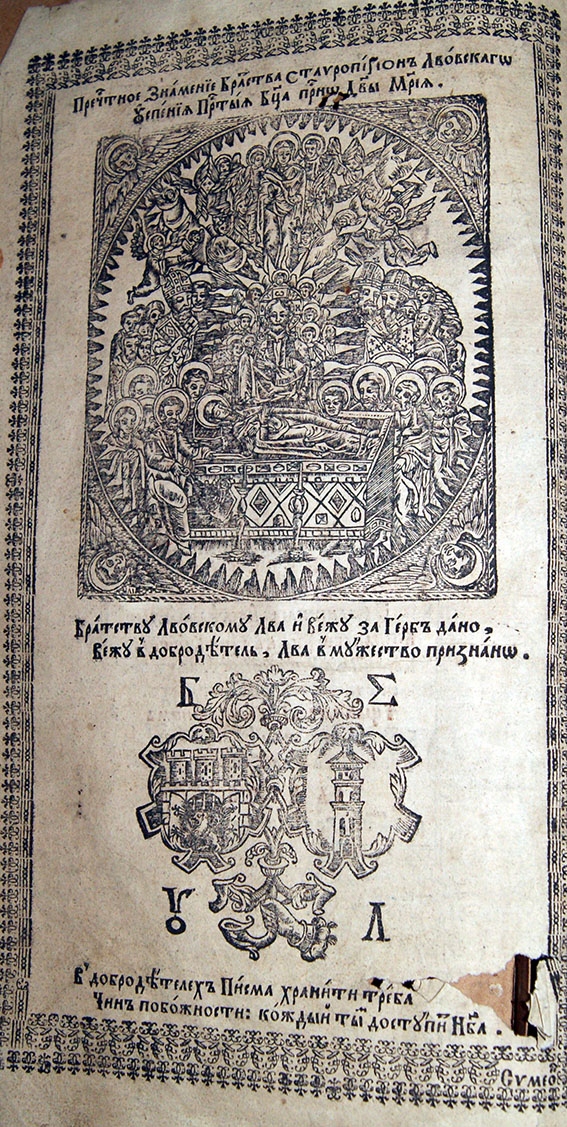 Пречⷭ҇тное Зна́меніе Бра́тства Ставропи́гіѡнъ Льво́вскагѡ
Оуспе́нія Прⷭ҇тыя Бц҃а при́нѡ Дв҃ы Мр҃ія.
Бра́тству Льво́вскому Лва и҆ ве́жу за Ге́рбъ да́но,
ве́жу в̾ добродѣ́тель, Лва в̾ му́жество призна́нѡ.
Б Σ
Ꙋ Л
В̾ добродѣ́телехъ Пи́сма храни́ти тре́ба
Чи́нъ побо́жности: ко́ждый ты́м̾ доступи́т̾ Нб҃а.
Сѵмеѡ́